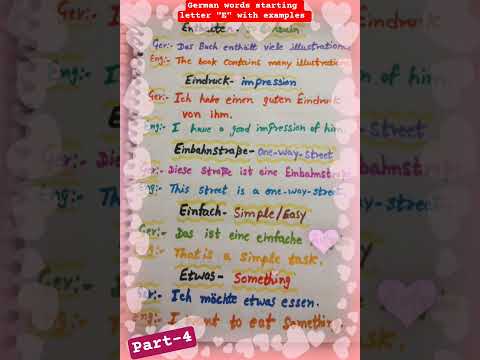 German words starting
letter "E" with examples
Ger:- Das Buch enthält viele illustration
Eng:- The book contains many illustration
Eindruck- impression
Ger:- Ich habe einen guten Eindruck
von ihm.
Eng:- I have a good impression of him
Einbahnstraße- one-way-street
Ger:- Diese straße ist eine Einbahnstraß
Eng:- This street is a one-way-street
Einfach- Simple/Easy
Ger:- Das ist eine einfache
That is a simple task.
Etwas- Something
Ger:- Ich möchte etwas essen.
Eng:- I want to eat something.
Part-4